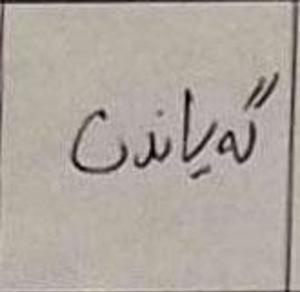 گەیاندن